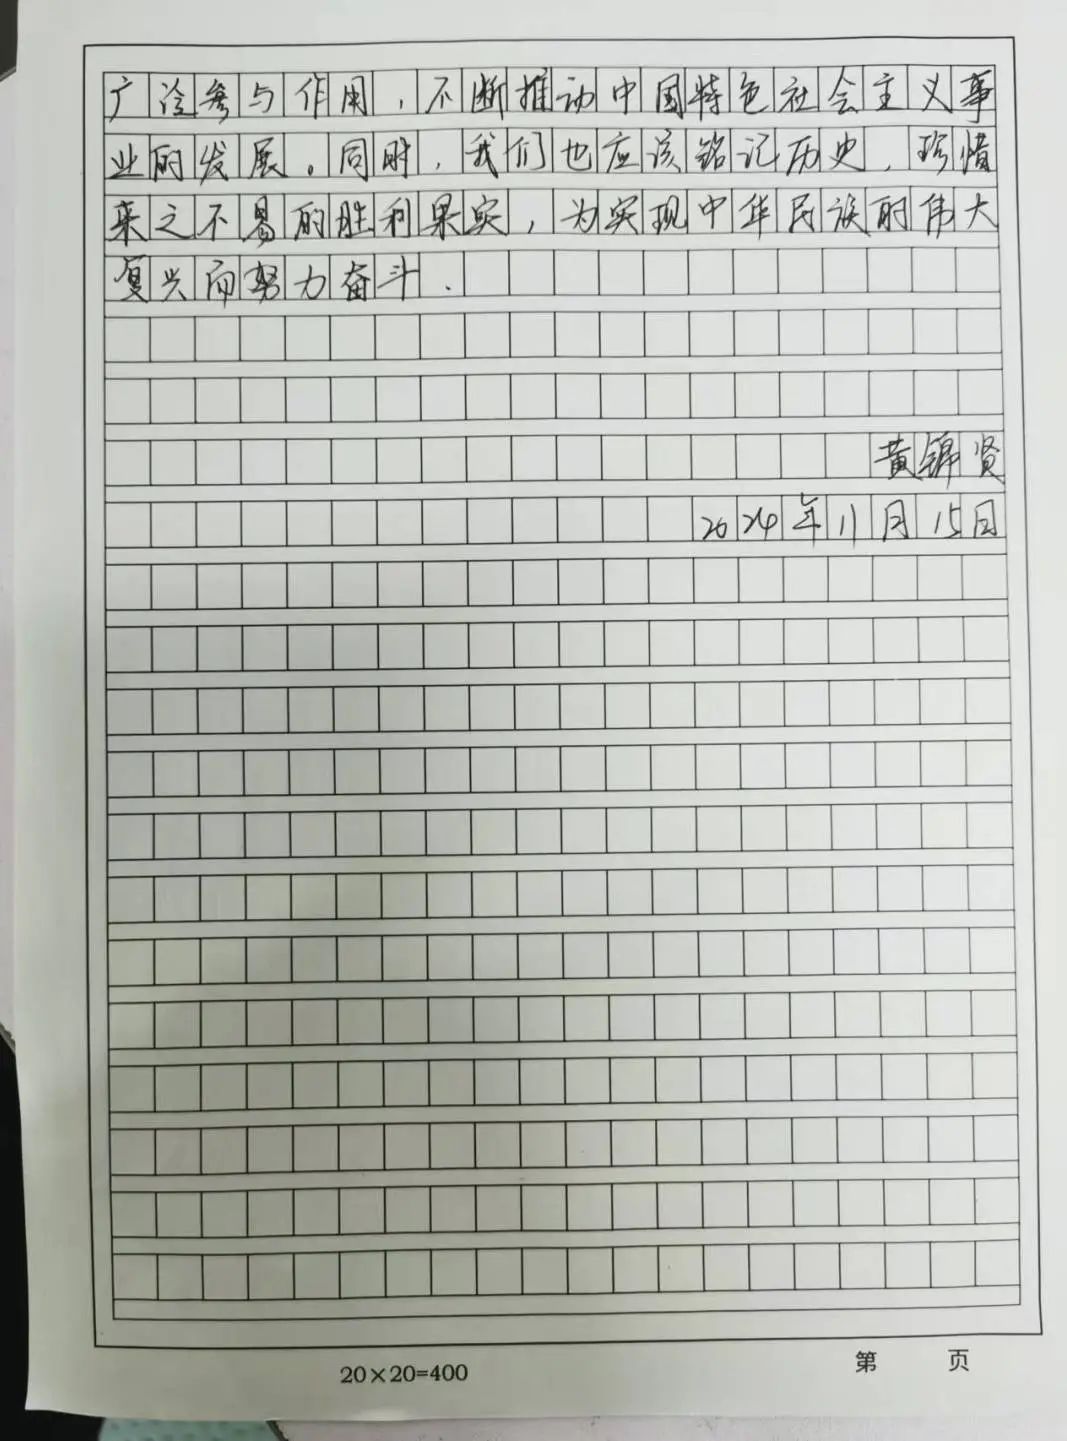 广泛参与作用，不断推动中国特色社会主义事
业的发展。同时，我们也应该铭记历史，珍惜
来之不易的胜利果实，为实现中华民族的伟大
复兴而努力奋斗.
黄锦贤
2024年11月15日
20×20=400
第 页